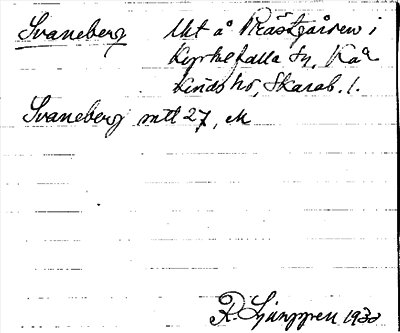 Svaneberg Ukt å Prästgården i
Kyrkefalla sn, Kåk
linds hd, Skarab. l.
Svaneberg mtl 27, M
R. Ljunggren 1930